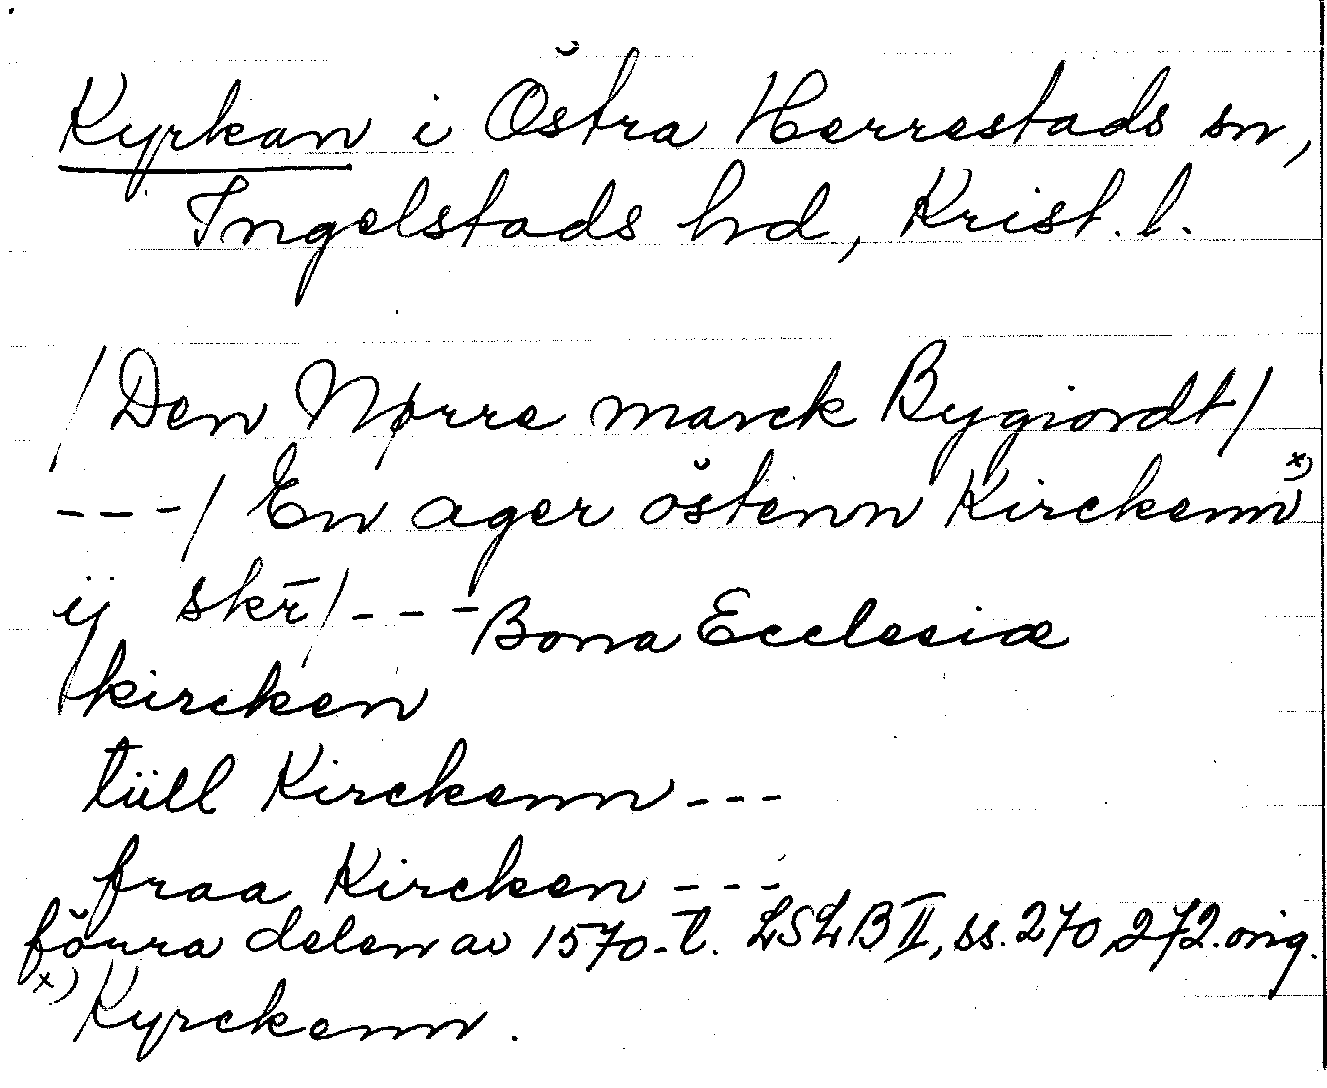 Kyrkan i Östra Herrestads sn,
Ingelstads hd, Krist. l.
/Den Nørre marck Bygiordt/
---/ En ager östenn Kirckenn x)
ij skr̄/--- Bona Ecclesiæ
/kircken
tüll Kirckenn ---
fraa Kircken ---
förra delen av 1570-t. LSLB II, ss. 270, 272. orig.
x) Kyrckenn.